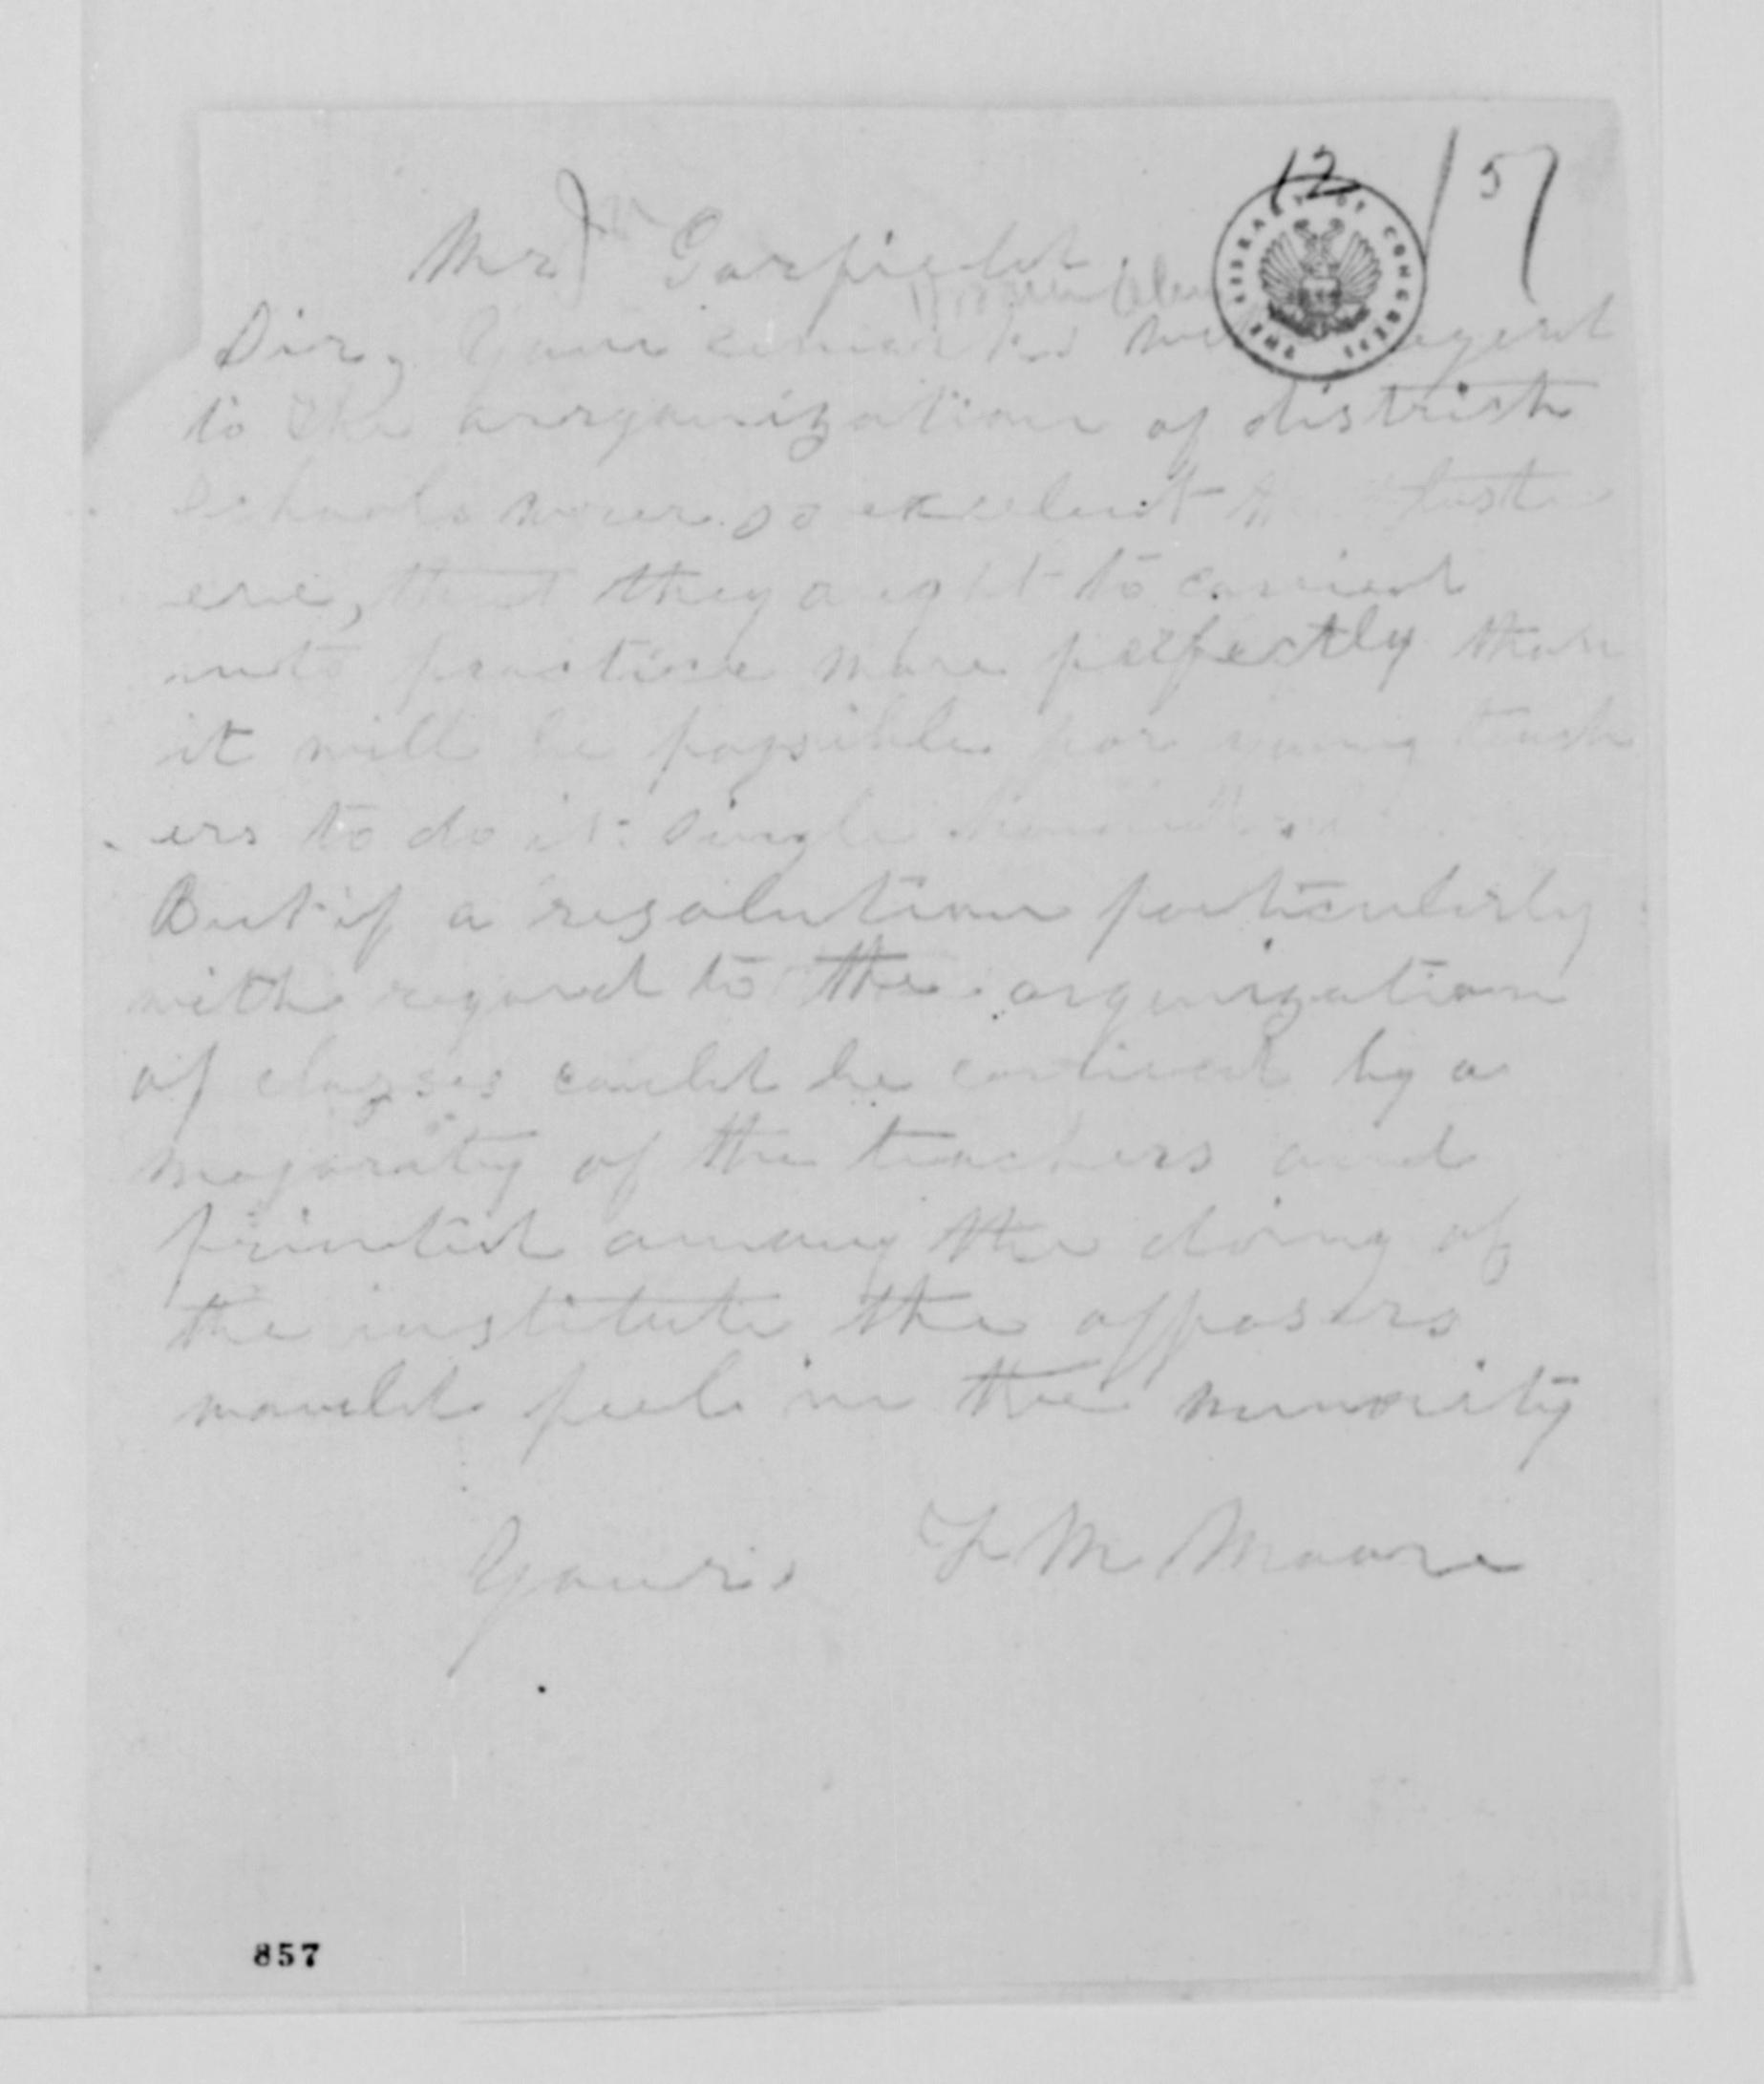 12 / 57
Mr Garfield
Sir, Your remarks with regard
to the orrganization of district
schools were so excelent last
eve, that they ought to carried
into practice more perfectly than
it will be possible for young teach
ers to do it single
But if a resolution particularly
with regard to the organization
of classes could be carried by a
majority of the teachers and
printed among the doing of
the institute the opposers
would feel in the minority
Yours F M Moore
THE LIBRARY OF CONGRESS
857